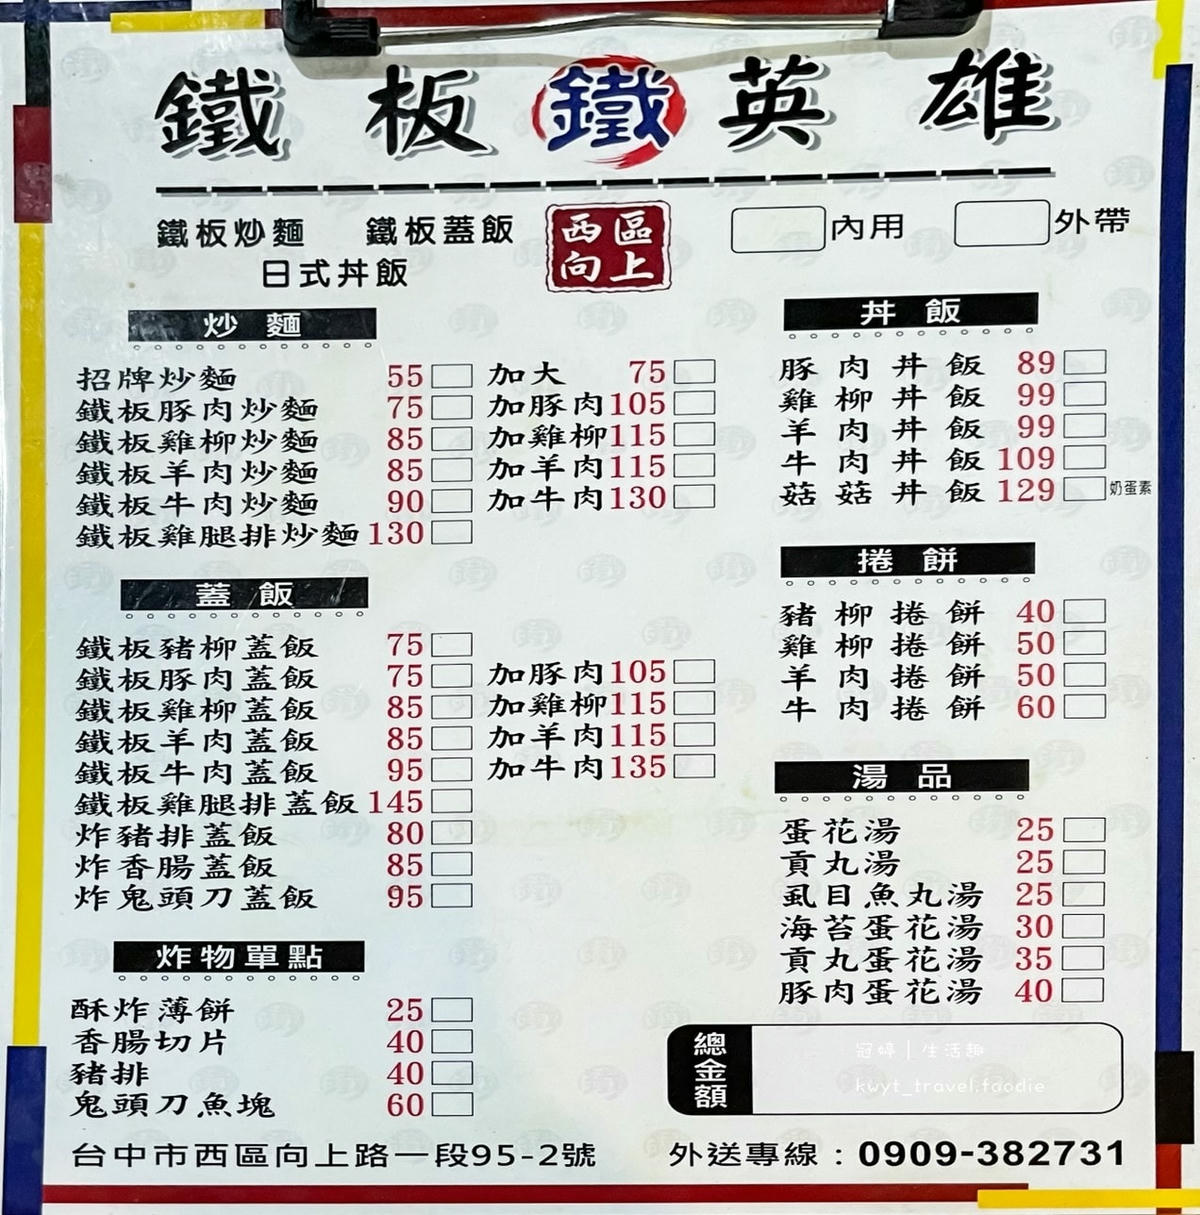 鐵板鐵英雄
鐵板炒麵 鐵板蓋飯
日式丼飯
西區
向上
內用 外帶
炒麵
招牌炒麵 55 加大 75
鐵板豚肉炒麵 75 加豚肉 105
鐵板雞柳炒麵 85 加雞柳 115
鐵板羊肉炒麵 85 加羊肉 115
鐵板牛肉炒麵 90 加牛肉 130
鐵板雞腿排炒麵 130
蓋飯
鐵板豬柳蓋飯 75
鐵板豚肉蓋飯 75 加豚肉 105
鐵板雞柳蓋飯 85 加雞柳 115
鐵板羊肉蓋飯 85 加羊肉 115
鐵板牛肉蓋飯 95 加牛肉 135
鐵板雞腿排蓋飯 145
炸豬排蓋飯 80
炸香腸蓋飯 85
炸鬼頭刀蓋飯 95
炸物單點
酥炸薄餅 25
香腸切片 40
豬排 40
鬼頭刀魚塊 60
丼飯
豚肉丼飯 89
雞柳丼飯 99
羊肉丼飯 99
牛肉丼飯 109
菇菇丼飯 129 奶蛋素
捲餅
豬柳捲餅 40
雞柳捲餅 50
羊肉捲餅 50
牛肉捲餅 60
湯品
蛋花湯 25
貢丸湯 25
虱目魚丸湯 25
海苔蛋花湯 30
貢丸蛋花湯 35
豚肉蛋花湯 40
總金額
冠婷｜生活趣
kwyt_travel.foodie
台中市西區向上路一段95-2號 外送專線：0909-382731